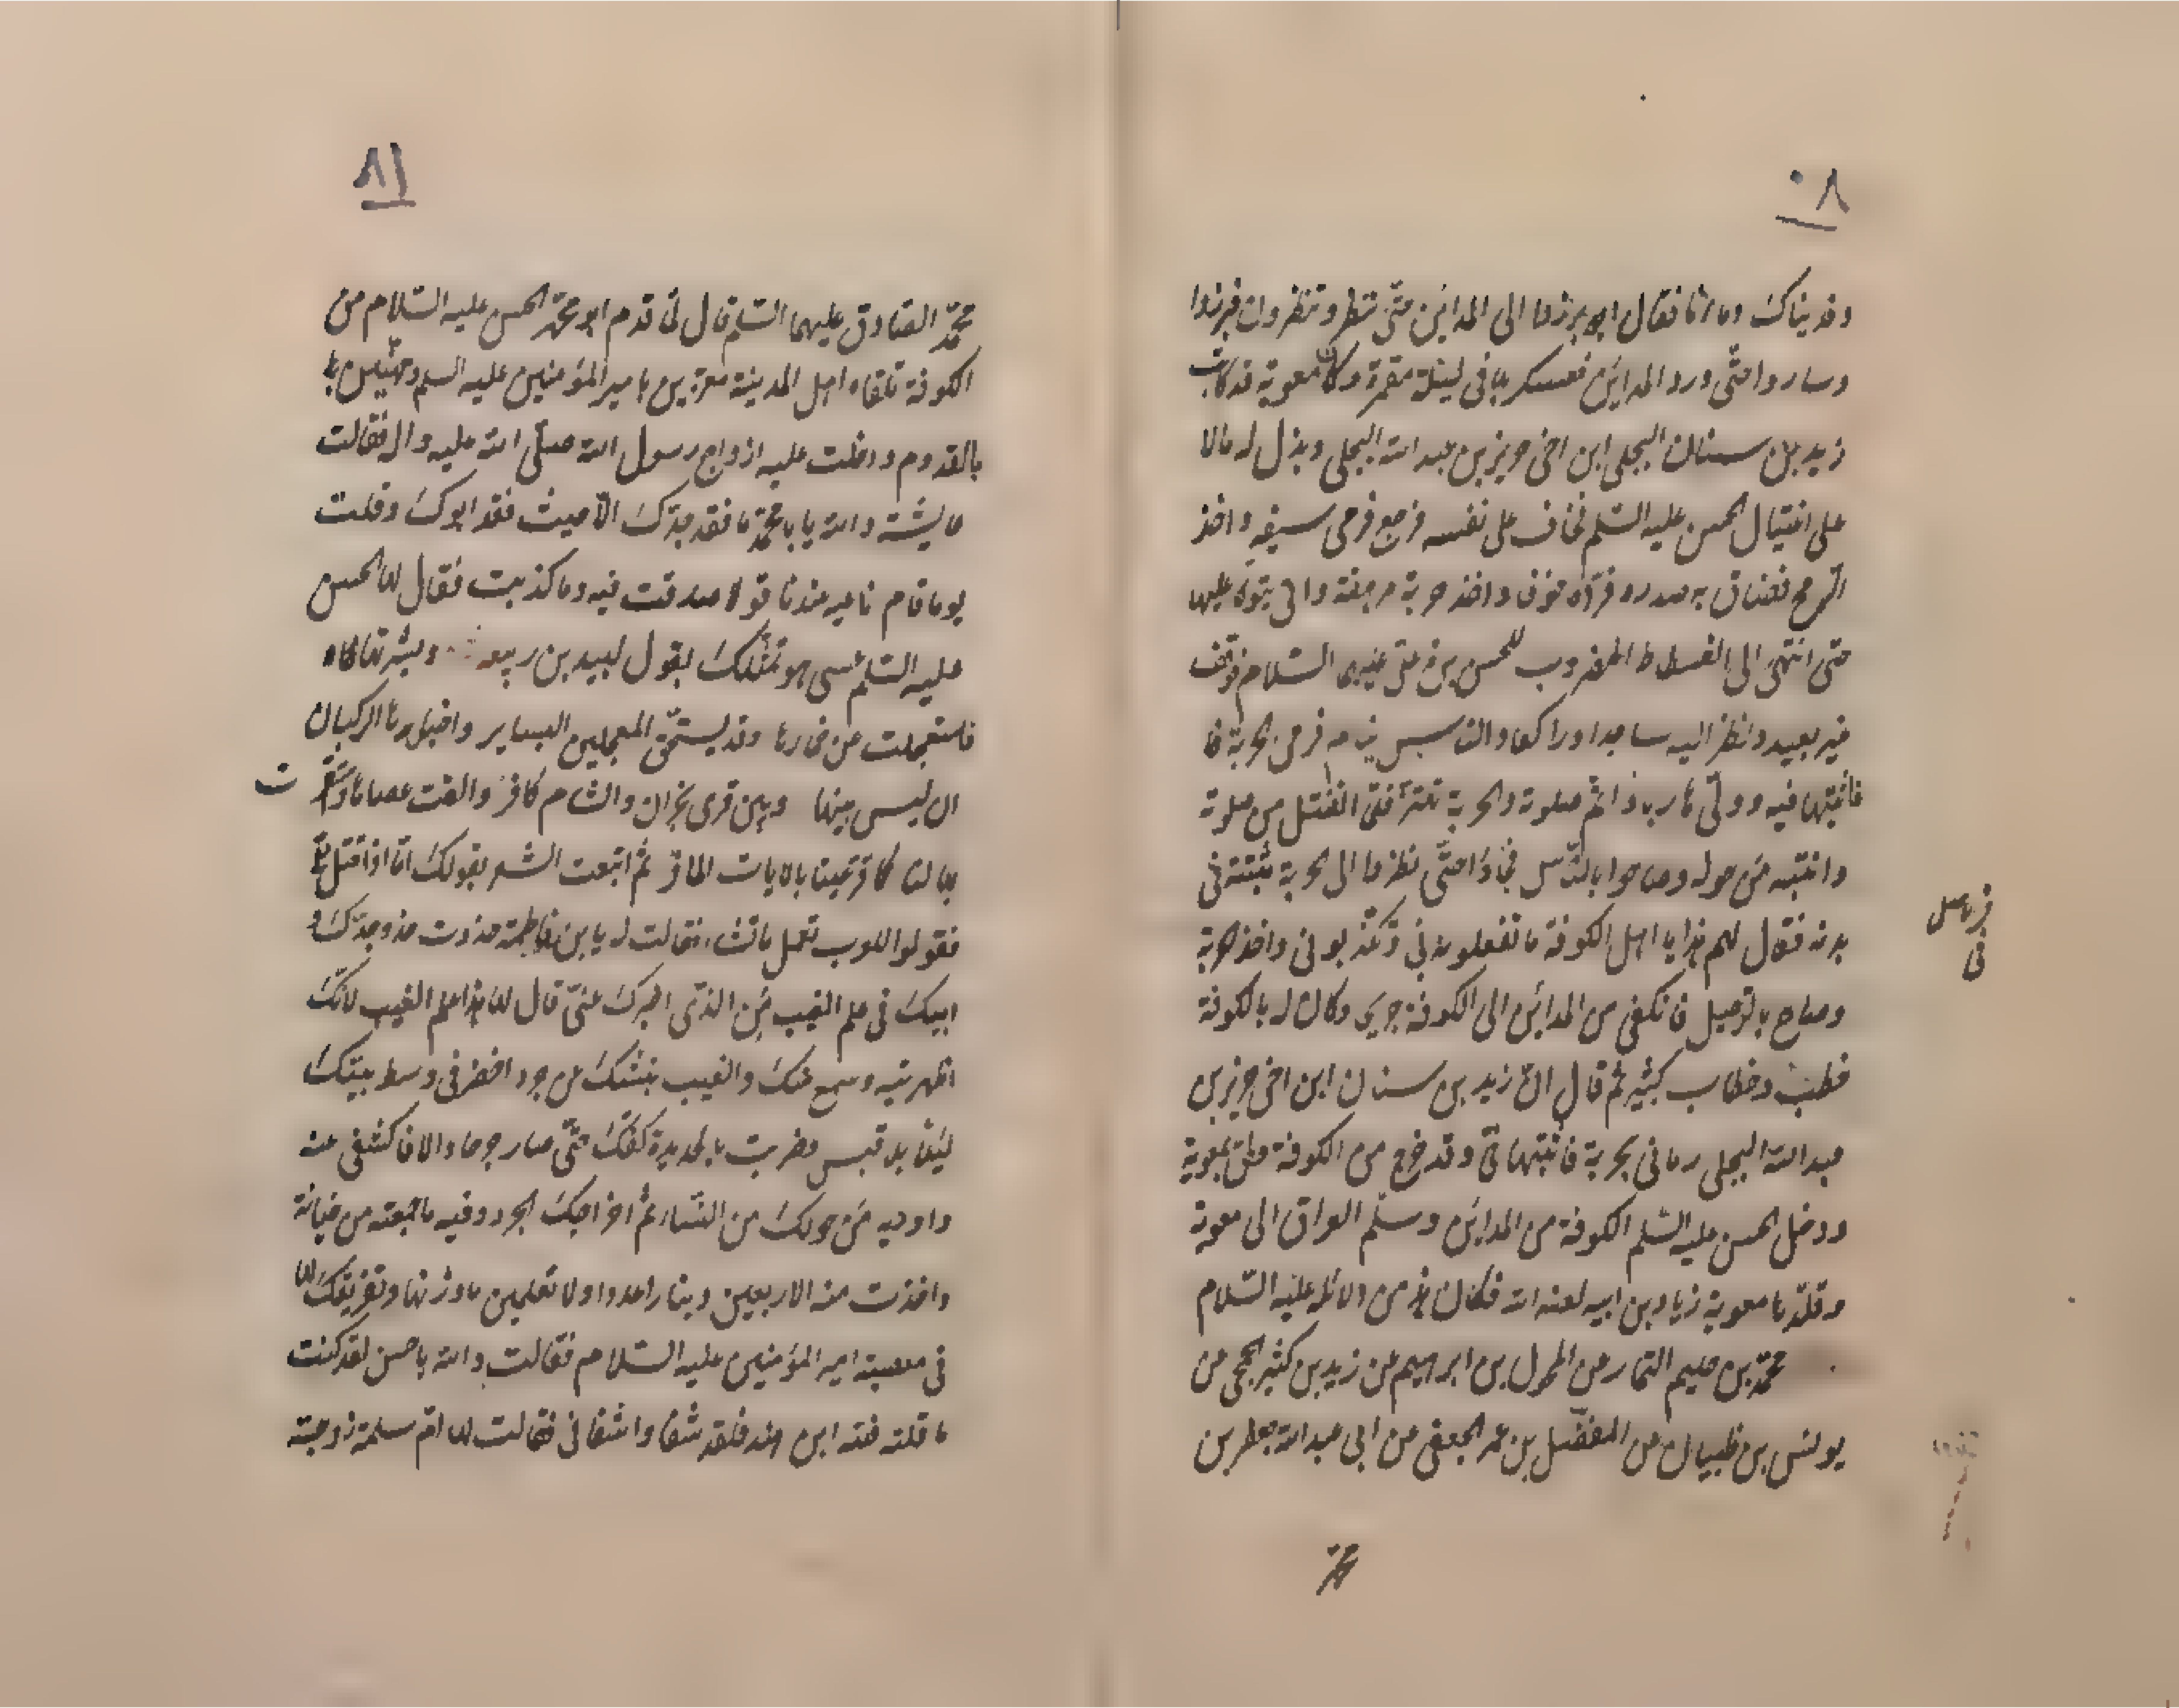 ٨٠
وفديناك وما لنا فقال ابو برزها الى المداين حتى ننظر وتنظرون فبرزوا
وساروا حتى ورد المداين فعسكر بها في ليلة مقمرة وكان معوية قد كاتب
زيد بن سنان البجلي ابن اخي جرير بن عبد الله البجلي وبذل له مالا
على اغتيال الحسن عليه السلم فخاف على نفسه فرجع فرمى سيفه واخذ
الرمح فضاق به صدره فرده خوفا واخذ حربة مرهفة واقبل يتوكا عليها
حتى انتهى الى الفسطاط المضروب للحسن بن علي عليهما السلام فوقف
غير بعيد ونظر اليه ساجدا وراكعا والناس نيام فرمى بالحربة فا
فاثبتها فيه وولى هاربا فاتم صلوته والحربة تهتز ثم انفتل من صلوته
وانتبه من حوله وصاحوا بالناس فجاؤا حتى نظروا الى الحربة مثبتة في
بدنه فقال لهم هذا يا اهل الكوفة ما تفعلونه بي وتكذبوني واخذ الحربة
وصاح بالرحيل فانكفى من المداين الى الكوفة جريحا وكان له بالكوفة
خطب وخطاب كثير ثم قال ان زيد بن سنان ابن اخي جرير بن
عبد الله البجلي رماني بحربة فاثبتها في وقد خرج من الكوفة ولحق بمعوية
ودخل الحسن عليه السلم الكوفة من المداين وسلم العراق الى معوية
وقلدها معوية زياد بن ابيه لعنه الله فكان هذا من دلائله عليه السلام
محمد بن عليم التمار عن المخول بن ابراهيم عن زيد بن كثير الجمحي عن
يونس بن ظبيان عن المفضل بن عمر الجعفي عن ابي عبد الله جعفر بن
في
محمد
٨١
محمد الصادق عليهما السلم قال لما قدم ابو محمد الحسن عليه السلام من
الكوفة تلقاه اهل المدينة معزين بامير المؤمنين عليه السلم ومهنيين
بالقدوم ودخلت عليه ازواج رسول الله صلى الله عليه واله فقالت
عايشة والله يا با محمد ما فقد جدك الا حيث فقد ابوك وقلت
يوما قام ناعيه عندنا قولا صدقت فيه وما كذبت فقال لها الحسن
عليه السلم عسى هو تمثلك بقول لبيد بن ربيعة
فاستعجلت من خمارها وقد يستحق المعجلين البساير واخبرها الركبان
ان ليس بينها وبين قرى نجران والشام كافر والقت عصاها
بها كما قر عينا بالاياب المسافر ثم اتبعت الشعر بقولك اما اذا قتل علي
فقولوا للعرب تعمل ما تشاء فقالت له يا بن فاطمة حذوت حذو جدك و
ابيك في علم الغيب من الذي اخبرك عني قال لها هذا علم الغيب لانك
اظهرتيه وسمع عنك والغيب نبشك عن جرد اخضر في وسط بيتك
ليلا بلا قبس وضربت بالحديدة كفك حتى صار جرحا والا فاكشفي عنه
واوريه من حولك من النساء ثم اخراجك الجرد وفيه ما جمعته من خيانة
واخذت منه الاربعين دينارا عددا ولا تعلمين ما وزنها وتفريقك لها
في مبغضيه امير المؤمنين عليه السلام فقالت والله يا حسن لقد كنت
ما قلته فلله ابن هند فلقد شفا واشفاني فقالت لها ام سلمة زوجة